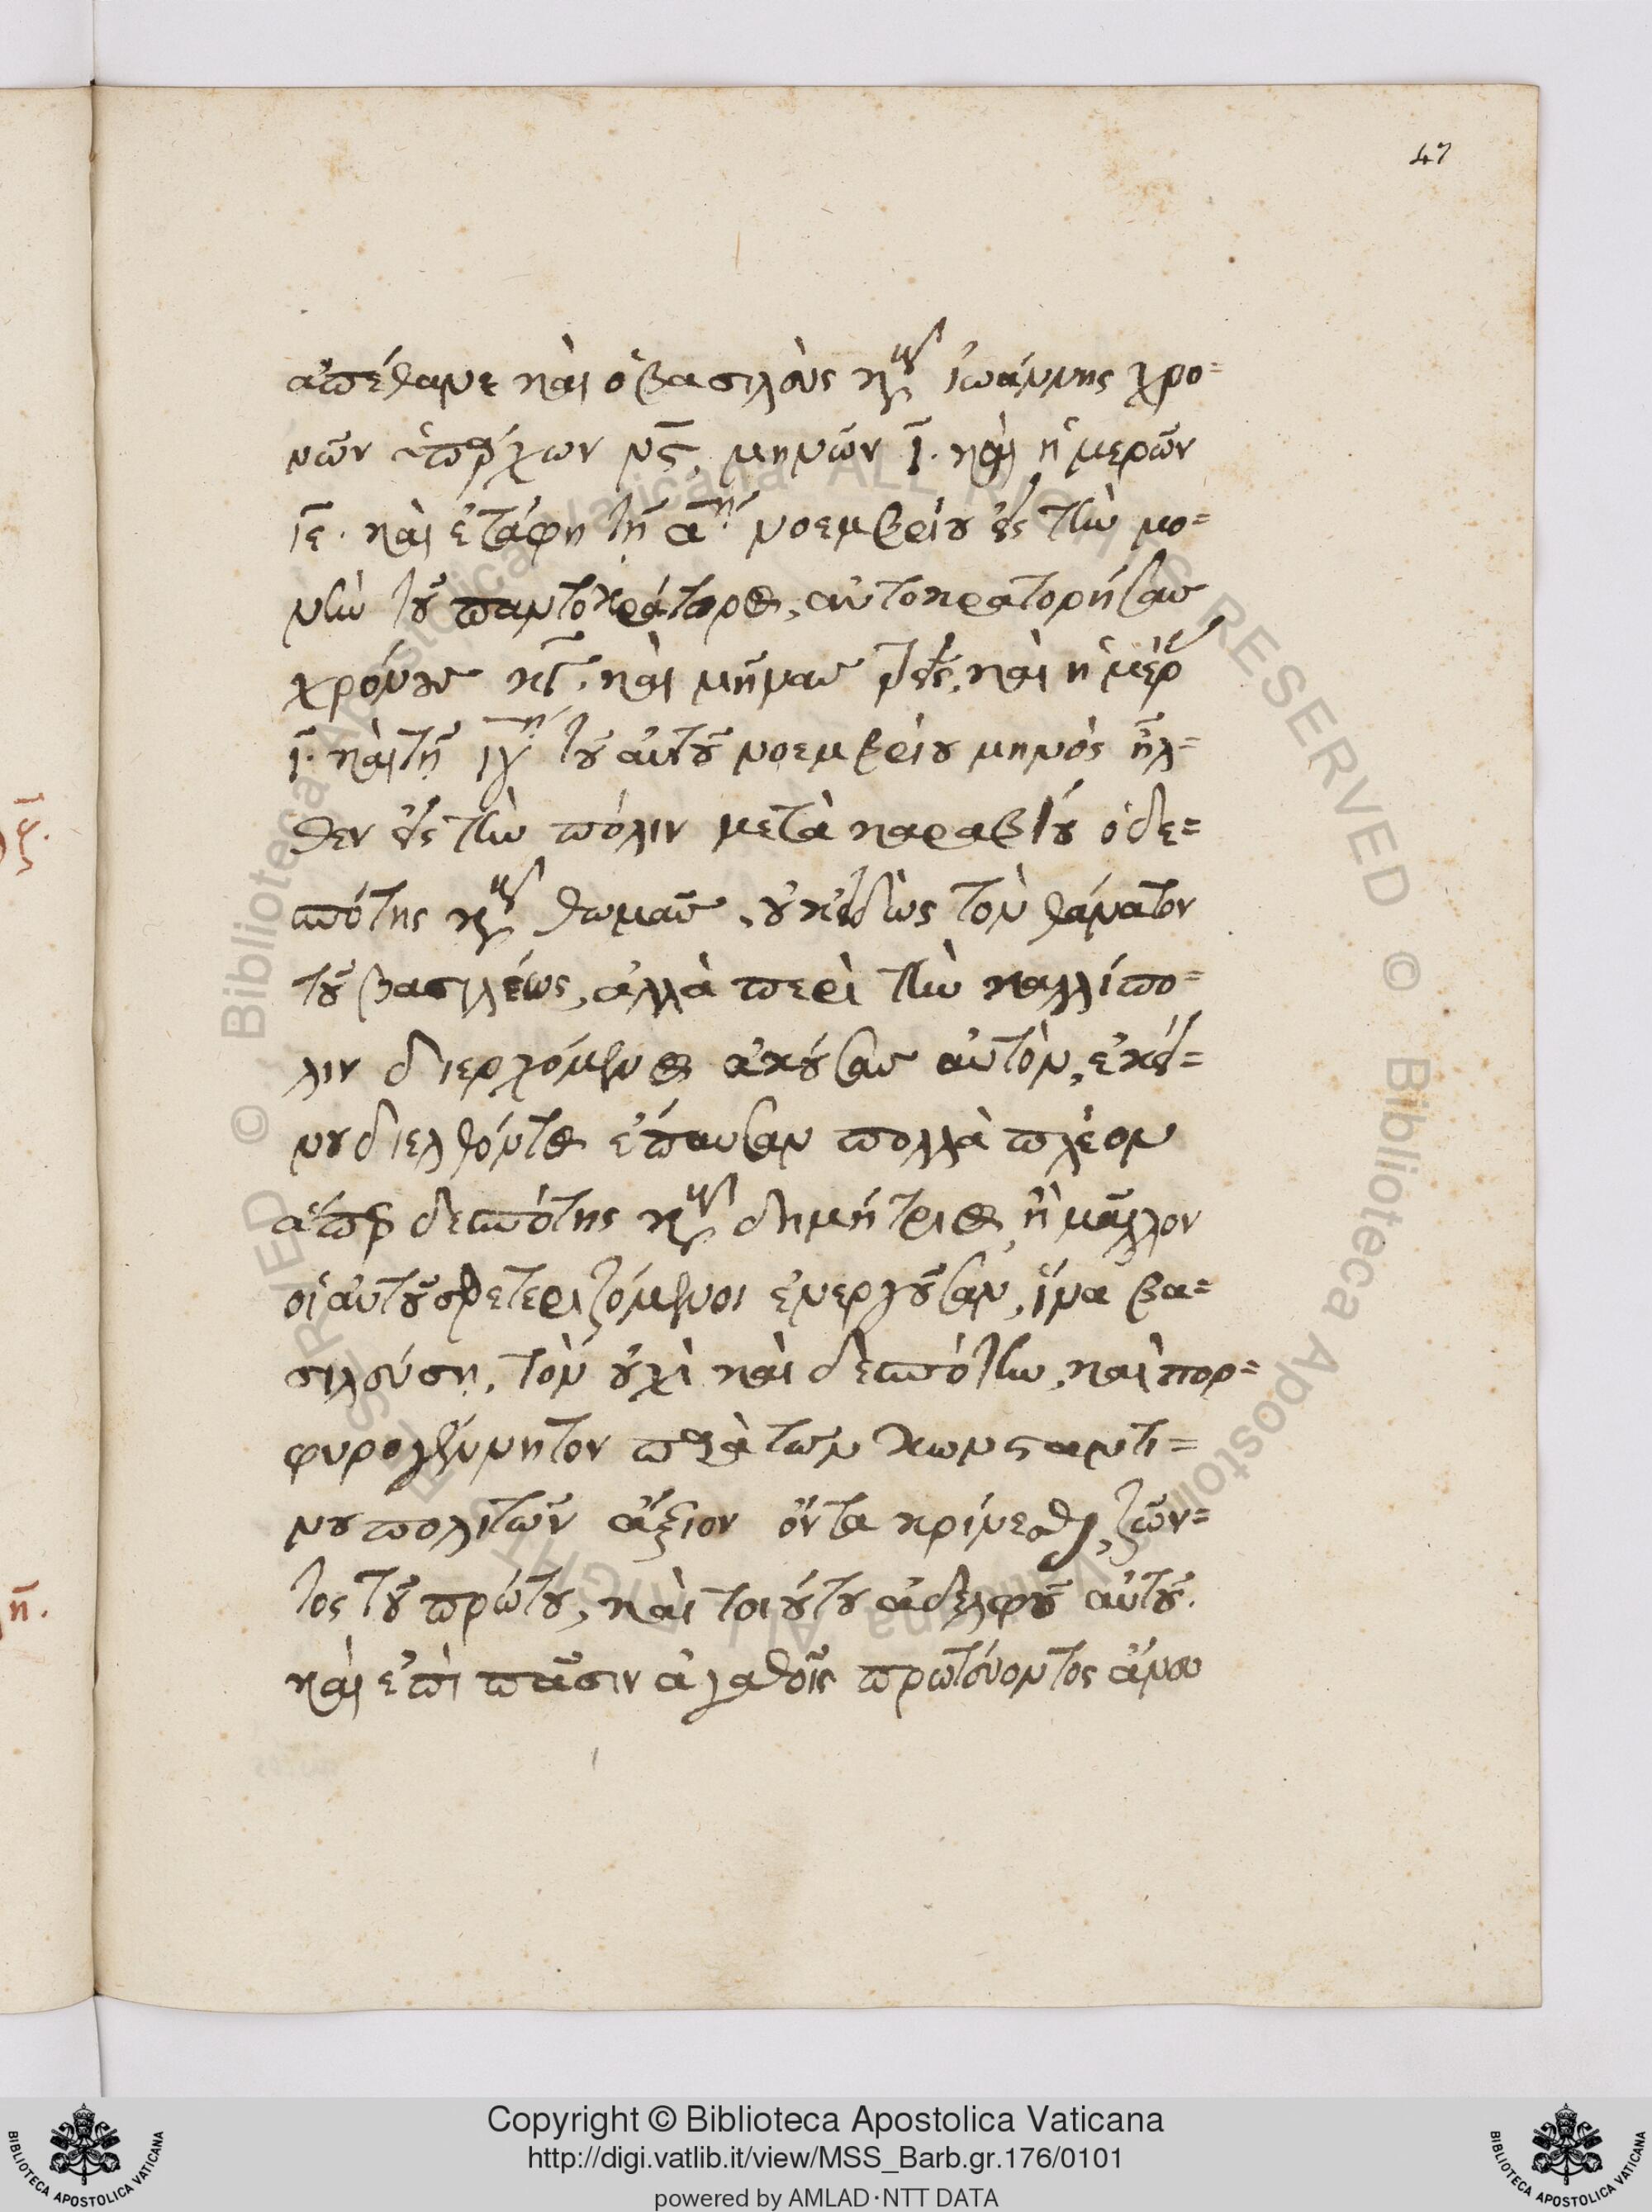 47
ἀπέθανε καὶ ὁ βασιλεὺς κὺρ ἰωάννης χρο=
νῶν ὑπάρχων νς̄, μηνῶν ῑ. καὶ ἡμερῶν
ῑε. καὶ ἐτάφη τῇ ᾱη νοεμβρίου εἰς τὴν μο=
νὴν τοῦ παντοκράτορος, αὐτοκρατορήσας
χρόνους κγ̄. καὶ μῆνας
ῑ. καὶ τῇ ῑγη τοῦ αὐτοῦ νοεμβρίου μηνὸς ἦλ=
θεν εἰς τὴν πόλιν μετὰ καραβίου ὁ δε=
σπότης κὺρ θωμᾶς, οὐκ εἰδὼς τὸν θάνατον
τοῦ βασιλέως, ἀλλὰ περὶ τὴν καλλίπο=
λιν διερχόμενος ἀκούσας αὐτὸν, ἐκεί=
νου διελθόντος ἔπαυσαν πολλὰ πλέον
ἅπερ δεσπότης κὺρ δημήτριος, ἢ μᾶλλον
οἱ αὐτοῦ σφετεριζόμενοι ἐνεργοῦσαν, ἵνα βα=
σιλεύσῃ, τὸν οὐχὶ καὶ δεσπότην, καὶ πορ=
φυρογέννητον παρὰ τῶν κωνσταντι=
νουπολιτῶν ἄξιον ὄντα κρίνεσθαι, ζῶν=
τος τοῦ πρώτου, καὶ τοιούτου ἀδελφοῦ αὐτοῦ.
καὶ ἐπὶ πᾶσιν ἀγαθοῖς πρωτεύοντος ἄνευ
ς̄.
η̄.
© Biblioteca Apostolica Vaticana ALL RIGHTS RESERVED
Copyright © Biblioteca Apostolica Vaticana
http://digi.vatlib.it/view/MSS_Barb.gr.176/0101
powered by AMLAD·NTT DATA
BIBLIOTECA APOSTOLICA VATICANA
BIBLIOTECA APOSTOLICA VATICANA